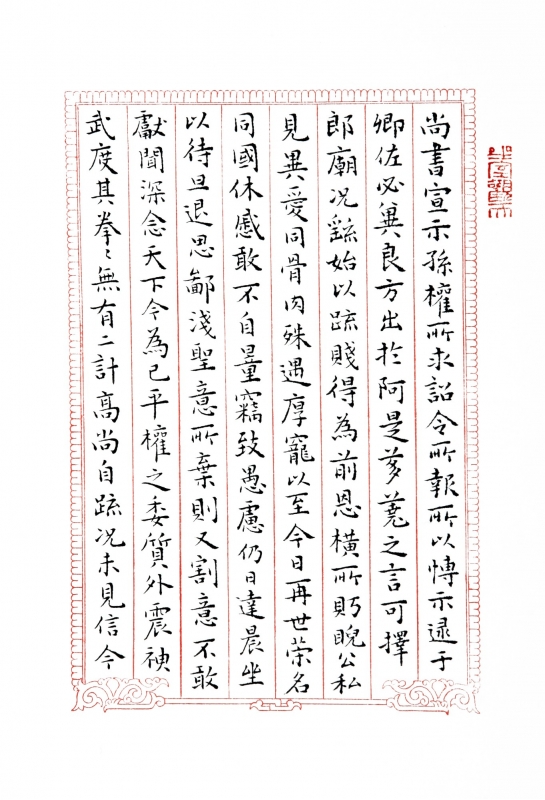 尚書宣示孫權所求詔令所報所以博示逮于
卿佐必冀良方出於阿是芻蕘之言可擇
郎廟況繇始以疏賤得為前恩橫所眄睨公私
見異愛同骨肉殊遇厚寵以至今日再世榮名
同國休慼敢不自量竊致愚慮仍日達晨坐
以待旦退思鄙淺聖意所棄則又割意不敢
獻聞深念天下今為已平權之委質外震神
武度其拳〻無有二計高尚自疏況未見信今